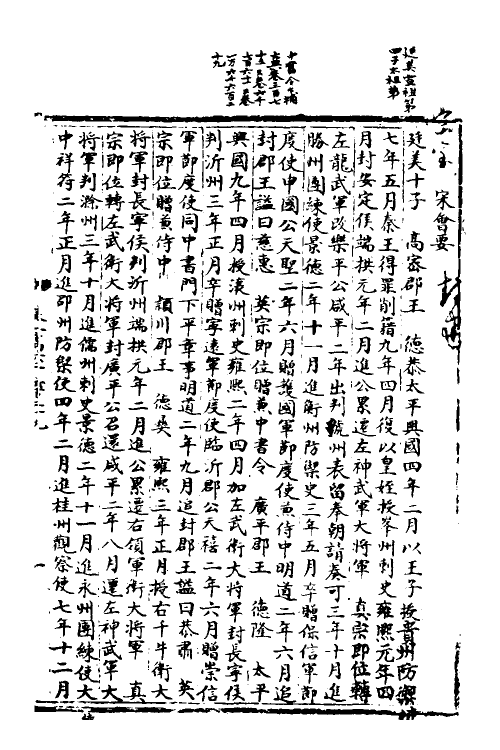 廷美宣祖第
四子太祖第
宋會要
廷美十子 高密郡王 德恭太平興國四年二月以王子授貴州防禦使
七年五月秦王得罪削籍九年四月復以皇姪授峯州刺史雍熙元年四
月封安定侯端拱元年二月進公累遷左神武軍大將軍 真宗即位轉
左龍武軍改樂平公咸平二年出判虢州表留奉朝請奏可三年十月進
勝州團練使景德二年十一月進衡州防禦史三年五月卒贈保信軍節
度使申國公天聖二年六月贈護國軍節度使兼侍中明道二年六月追
封郡王謚曰慈惠 英宗即位贈兼中書令 廣平郡王 德隆 太平
興國九年四月授瀼州刺史雍熙二年四月加左武衛大將軍封長寧侯
判沂州三年正月卒贈寧遠軍節度使臨沂郡公天禧二年六月贈崇信
軍節度使同中書門下平章事明道二年九月追封郡王謚曰恭肅 英
宗即位贈兼侍中 潁川郡王 德彝 雍熙三年正月授右千牛衛大
將軍封長寧侯判沂州端拱元年二月進公累遷右領軍衛大將軍 真
宗即位轉左武衛大將軍封廣平公召還咸平二年八月遷左神武軍大
將軍判滁州三年十月進儒州刺史景德二年十一月進永州團練使大
中祥符二年正月進邵州防禦使四年二月進桂州觀察使七年十二月